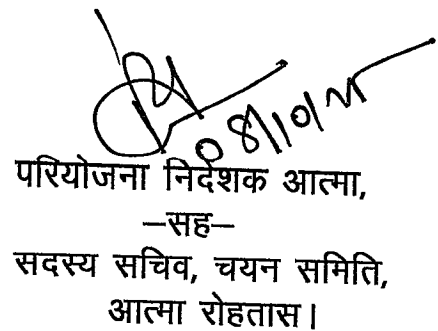 परियोजना निर्देशक आत्मा,
–सह–
सदस्य सचिव, चयन समिति,
आत्मा रोहतास।